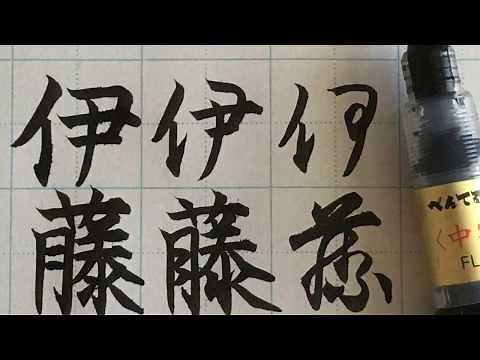 伊 伊 伊
藤 藤 藤
ぺんてる
〈中
FL